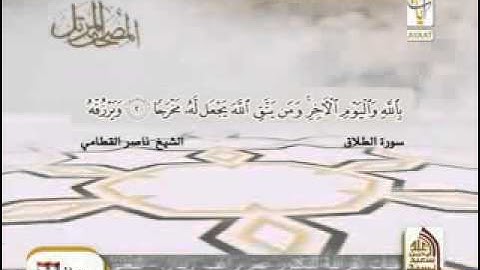 المصحف المرتل
آيات
AYAAT
بِٱللَّهِ وَٱلْيَوْمِ ٱلْآخِرِ ۚ وَمَن يَتَّقِ ٱللَّهَ يَجْعَل لَّهُۥ مَخْرَجًا ﴿٢﴾ وَيَرْزُقْهُ
سورة الطلاق
الشيخ ناصر القطامي